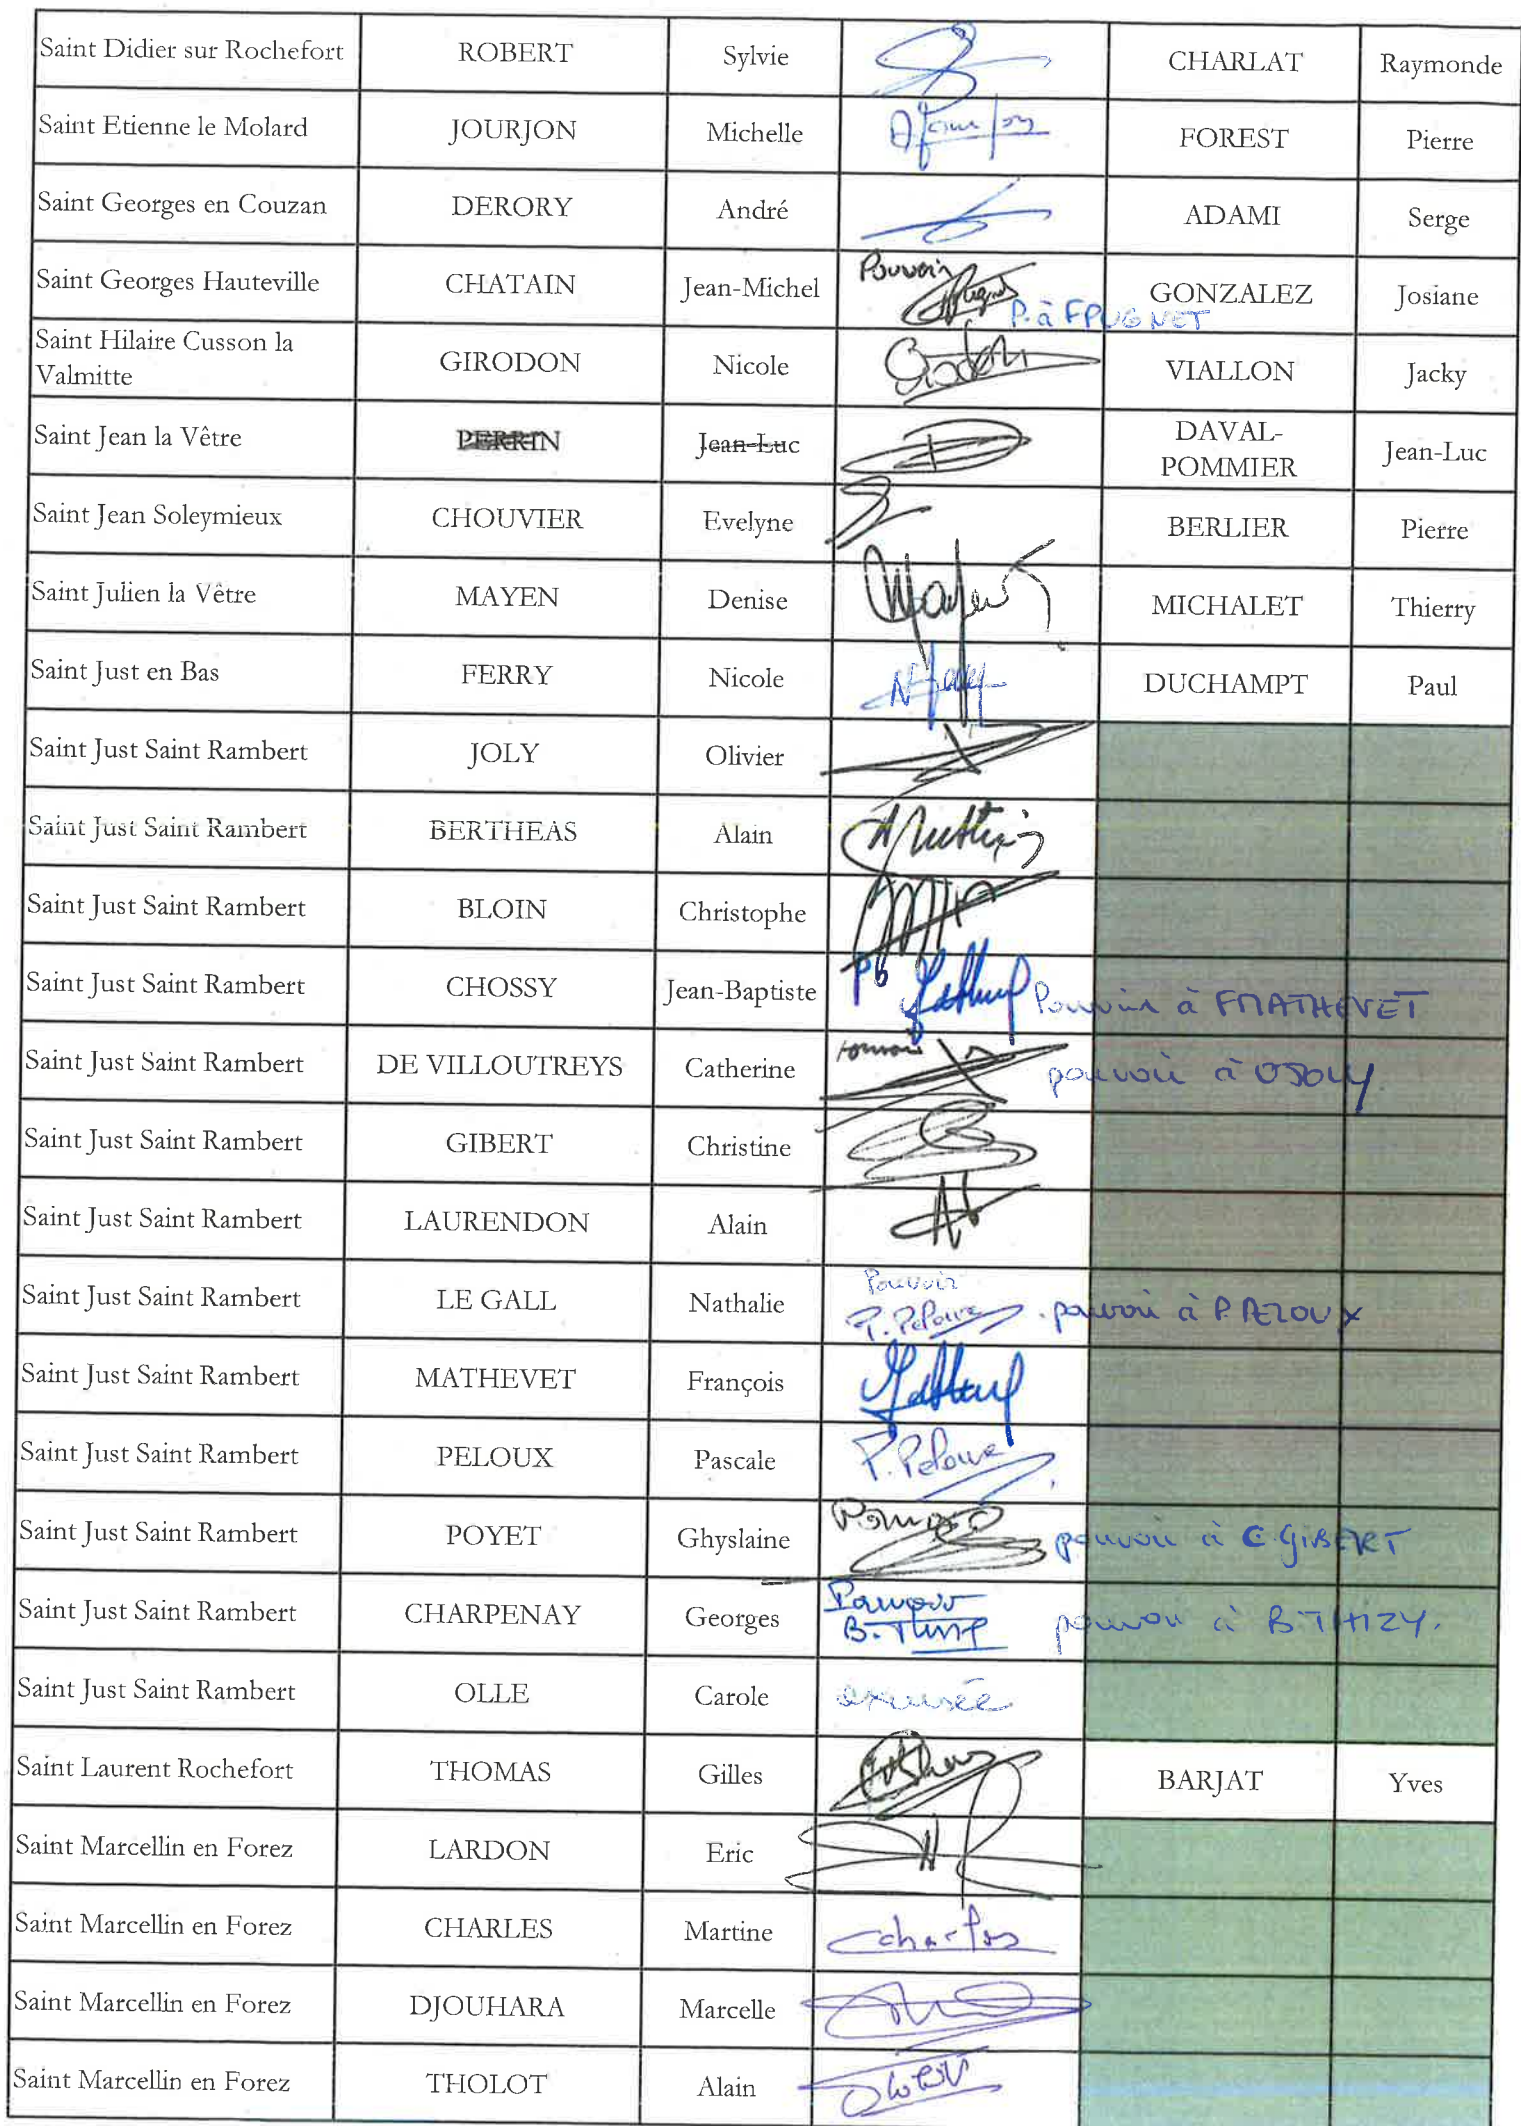 Saint Didier sur Rochefort ROBERT Sylvie CHARLAT Raymonde
Saint Etienne le Molard JOURJON Michelle FOREST Pierre
Saint Georges en Couzan DERORY André ADAMI Serge
Saint Georges Hauteville CHATAIN Jean-Michel Pouvoir P. à F PUGNET GONZALEZ Josiane
Saint Hilaire Cusson la
Valmitte GIRODON Nicole VIALLON Jacky
Saint Jean la Vêtre PERRIN Jean-Luc DAVAL-
POMMIER Jean-Luc
Saint Jean Soleymieux CHOUVIER Evelyne BERLIER Pierre
Saint Julien la Vêtre MAYEN Denise MICHALET Thierry
Saint Just en Bas FERRY Nicole DUCHAMPT Paul
Saint Just Saint Rambert JOLY Olivier
Saint Just Saint Rambert BERTHEAS Alain
Saint Just Saint Rambert BLOIN Christophe
Saint Just Saint Rambert CHOSSY Jean-Baptiste Pouvoir à F MATHEVET
Saint Just Saint Rambert DE VILLOUTREYS Catherine pouvoir à O JOLY
Saint Just Saint Rambert GIBERT Christine
Saint Just Saint Rambert LAURENDON Alain
Saint Just Saint Rambert LE GALL Nathalie Pouvoir
P. Peloux pouvoir à P. PELOUX
Saint Just Saint Rambert MATHEVET François
Saint Just Saint Rambert PELOUX Pascale P. Peloux
Saint Just Saint Rambert POYET Ghyslaine Pouvoir pouvoir à C. GIBERT
Saint Just Saint Rambert CHARPENAY Georges Pouvoir
B. Thizy pouvoir à B. THIZY.
Saint Just Saint Rambert OLLE Carole excusée
Saint Laurent Rochefort THOMAS Gilles BARJAT Yves
Saint Marcellin en Forez LARDON Eric
Saint Marcellin en Forez CHARLES Martine Charles
Saint Marcellin en Forez DJOUHARA Marcelle
Saint Marcellin en Forez THOLOT Alain